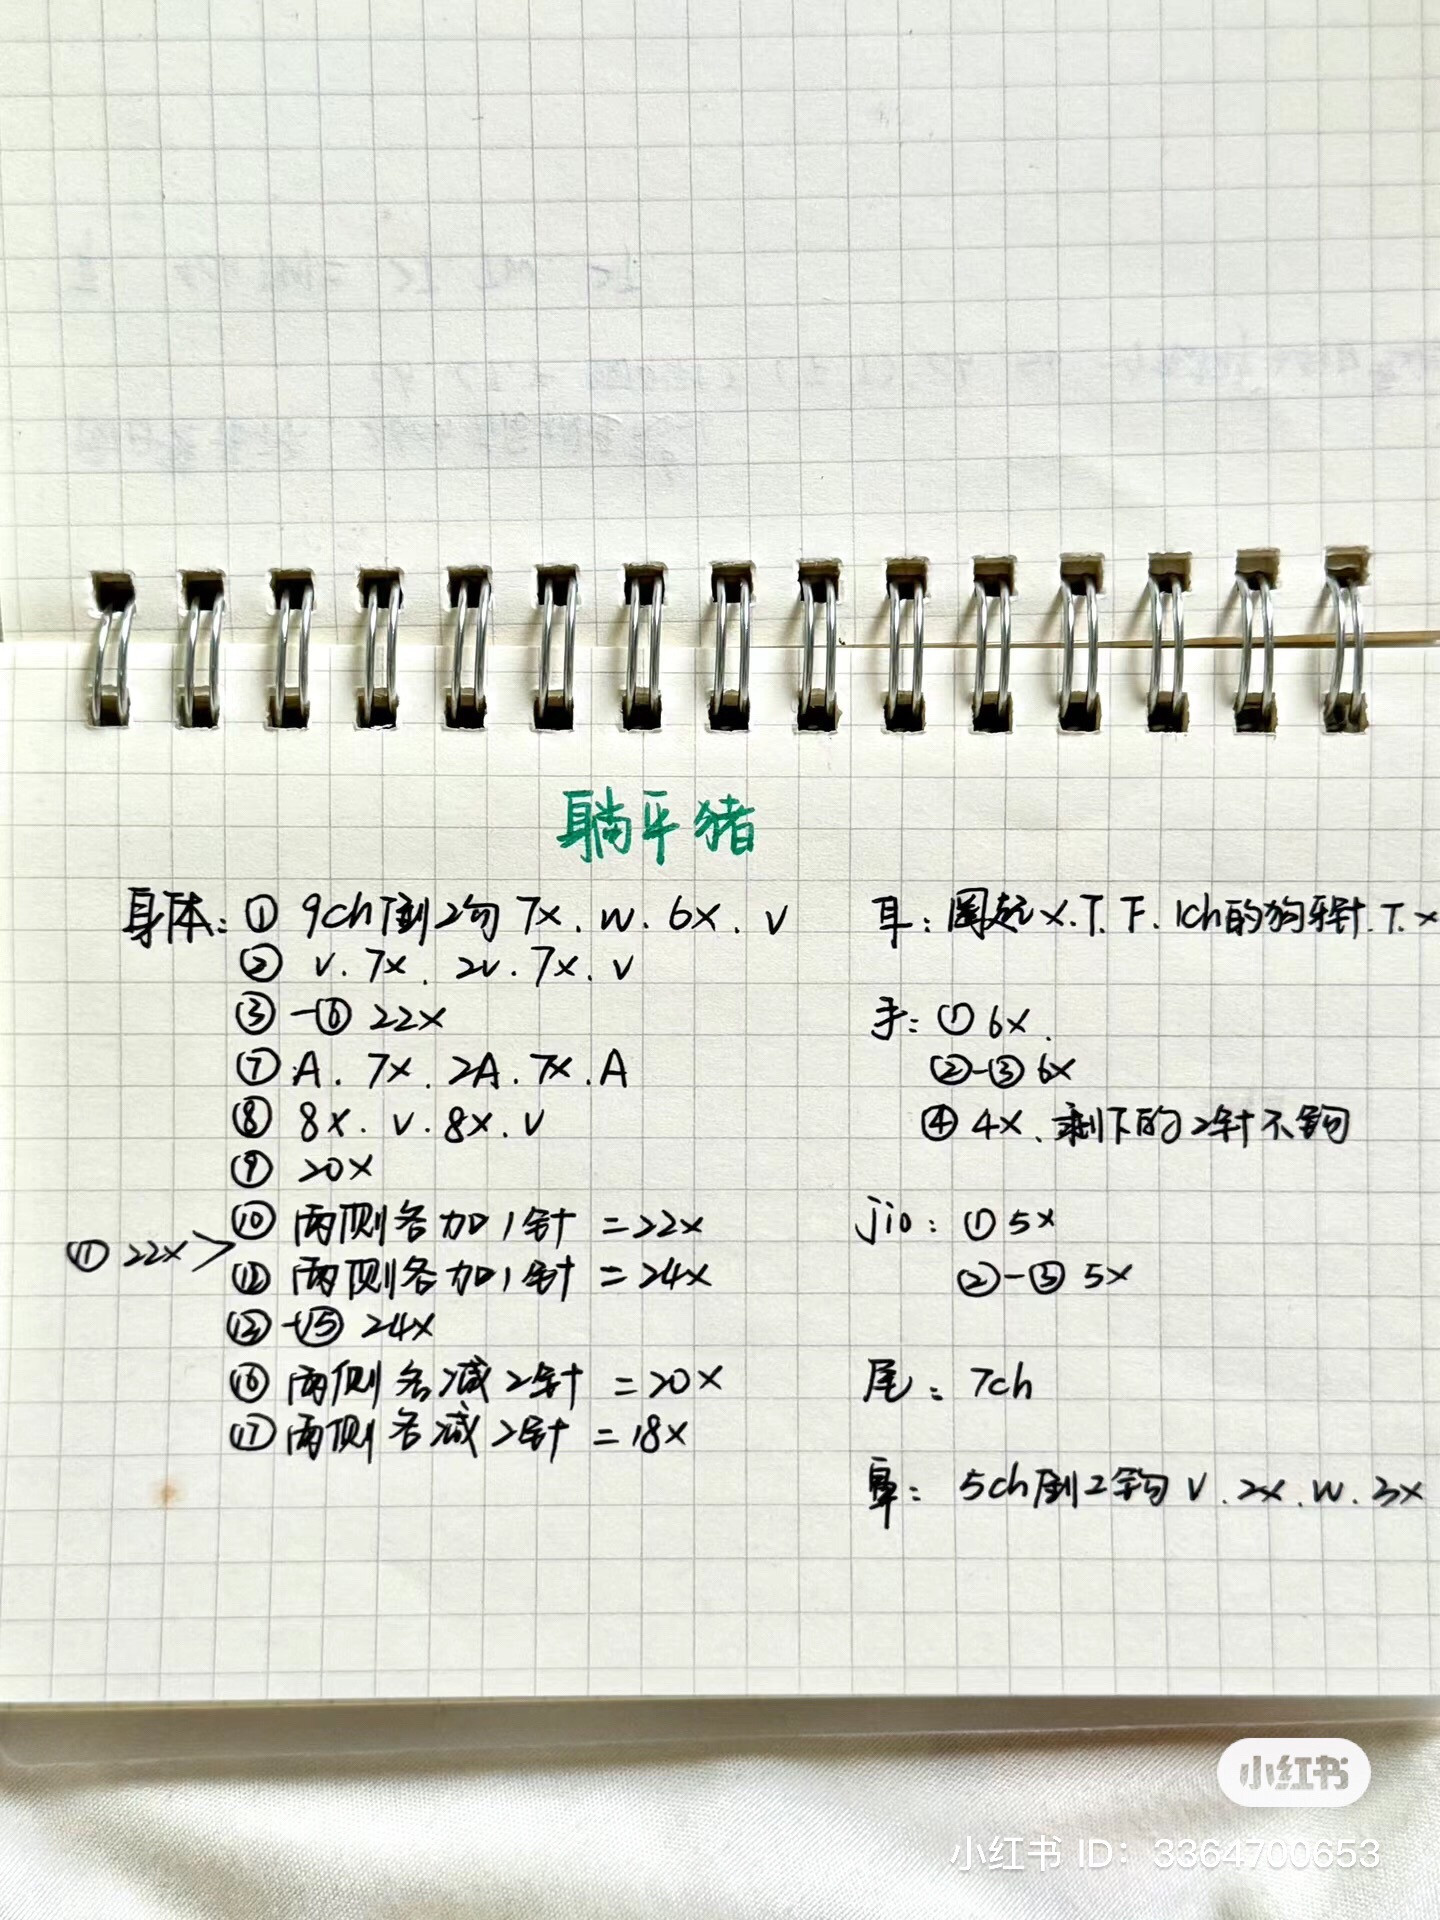 躺平猪
身体：① 9ch倒2勾 7x．w．6x．v
② v．7x．2v．7x．v
③-⑥ 22x
⑦ A．7x．2A．7x．A
⑧ 8x．v．8x．v
⑨ 20x
⑩ 两侧各加1针 =22x
⑪ 22x >
⑫ 两侧各加1针 =24x
⑬-⑮ 24x
⑯ 两侧各减2针 =20x
⑰ 两侧各减2针 =18x
耳：圈起x．T．下．1ch的狗牙针．T．x
手：① 6x．
②-③ 6x
④ 4x、剩下的2针不钩
jio：① 5x
②-③ 5x
尾：7ch
鼻：5ch倒2钩 v．2x．w．3x
小红书
小红书 ID：3364700653